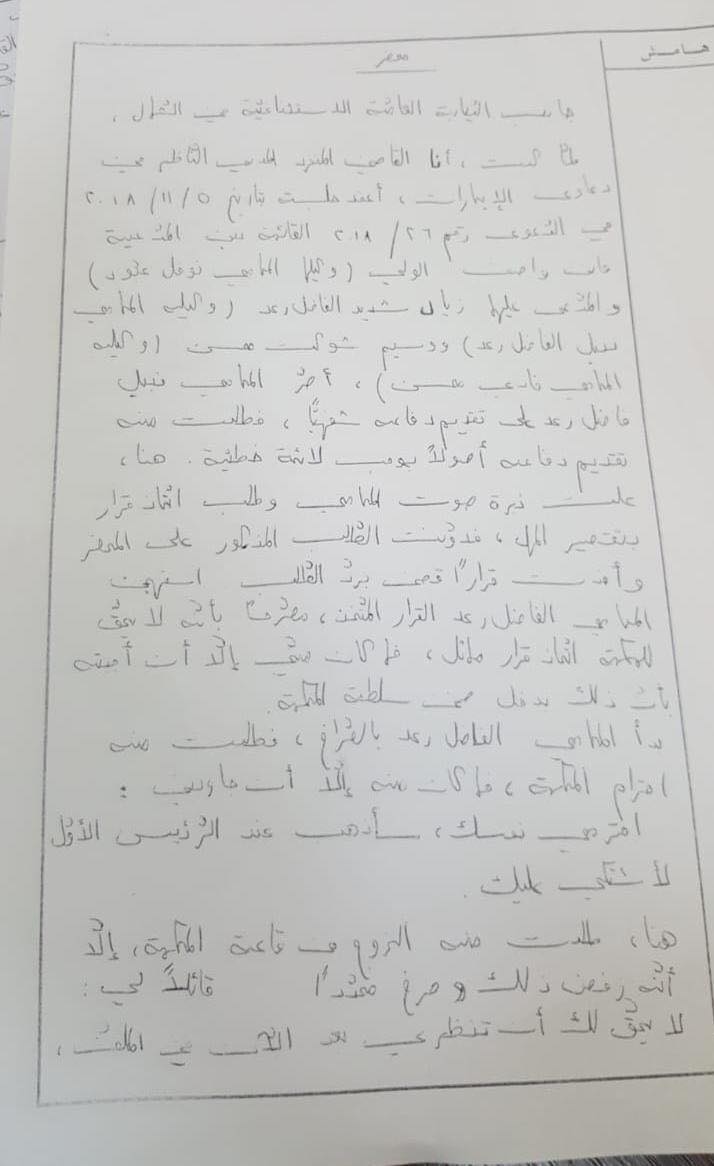 هامش
محضر
جانب النيابة العامة الاستئنافية في الشمال ،
لمّا كنت ، أنا القاضي المنفرد المدني الناظر في
دعاوى الإيجارات ، أعقد جلسة بتاريخ ٥/١١/٢٠١٨
في الدعوى رقم ٢٦/٢٠١٨ القائمة بين المدّعية
الولي (وكيلها المحامي نوفل)
والمدّعى عليها شديد الفاضل رعد (وكيله المحامي
نبيل الفاضل رعد) ووسيم شوكت حسن (وكيله
المحامي فادي حسن) ، أصرّ المحامي نبيل
فاضل رعد على تقديم دفاعه شفهيًّا ، فطلبت منه
تقديم دفاعه أصولاً بموجب لائحة خطّية . هنا ،
علت نبرة صوت المحامي وطلب اتّخاذ قرار
بتقصير المهل ، فدوّنت الطّلب المذكور على المحضر
وأصدرت قرارًا قضى بردّ الطّلب . استهجن
المحامي الفاضل رعد القرار المتّخذ ، مصرّحًا بأنّه لا يحقّ
للمحكمة اتّخاذ قرار مماثل ، فما كان منّي إلّا أن أجبته
بأنّ ذلك يدخل ضمن سلطة المحكمة .
بدأ المحامي الفاضل رعد بالصّراخ ، فطلبت منه
احترام المحكمة ، فما كان منه إلّا أن جاوبني :
احترمي نفسك ، سأذهب عند الرّئيس الأوّل
لأشتكي عليك .
هنا ، طلبت منه الخروج من قاعة المحكمة ، إلّا
أنّه رفض ذلك وصرخ مجدّدًا قائلاً لي :
لا يحقّ لك أن تنظري بعد الآن في الملفّ ،